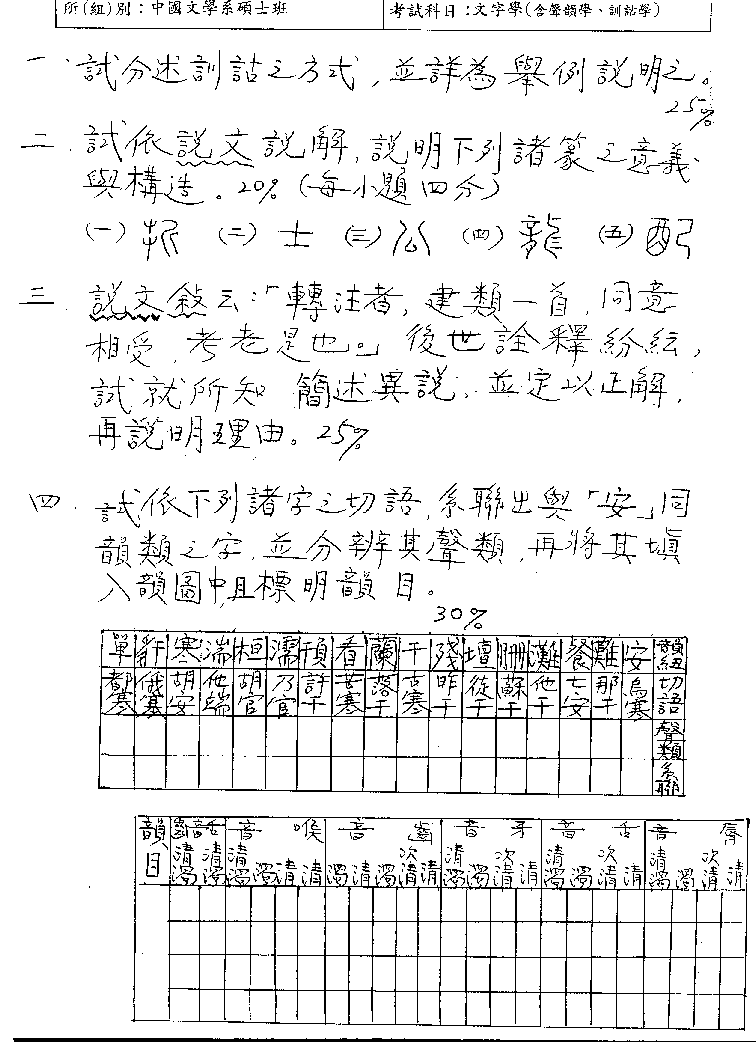 所(組)別:中國文學系碩士班
考試科目:文字學(含聲韻學、訓詁學)
一、試分述訓詁之方式,並詳為舉例說明之。
25%
二、試依說文說解,說明下列諸篆之意義
與構造。20%(每小題四分)
(一) (二)士 (三)公 (四)龍 (五)配
三、說文敘云:「轉注者,建類一首,同意
相受,考老是也。」後世詮釋紛紜,
試就所知簡述異說,並定以正解,
再說明理由。25%
四、試依下列諸字之切語,系聯出與「安」同
韻類之字,並分辨其聲類,再將其填
入韻圖中,且標明韻目。
30%
單 豻 寒 湍 桓 濡 頇 看 蘭 干 殘 壇 珊 灘 餐 難 安 韻紐
都寒 俄寒 胡安 他端 胡官 乃官 許干 苦寒 落干 古寒 昨干 徒干 蘇干 他干 七安 那干 烏寒 切語
聲類
系聯
韻目 齒舌音 喉音 齒音 牙音 舌音 脣音
清濁 清濁 清濁 濁 清 清 濁 清 濁 次清 清 清濁 濁 次清 清 清濁 濁 次清 清 清濁 濁 次清 清